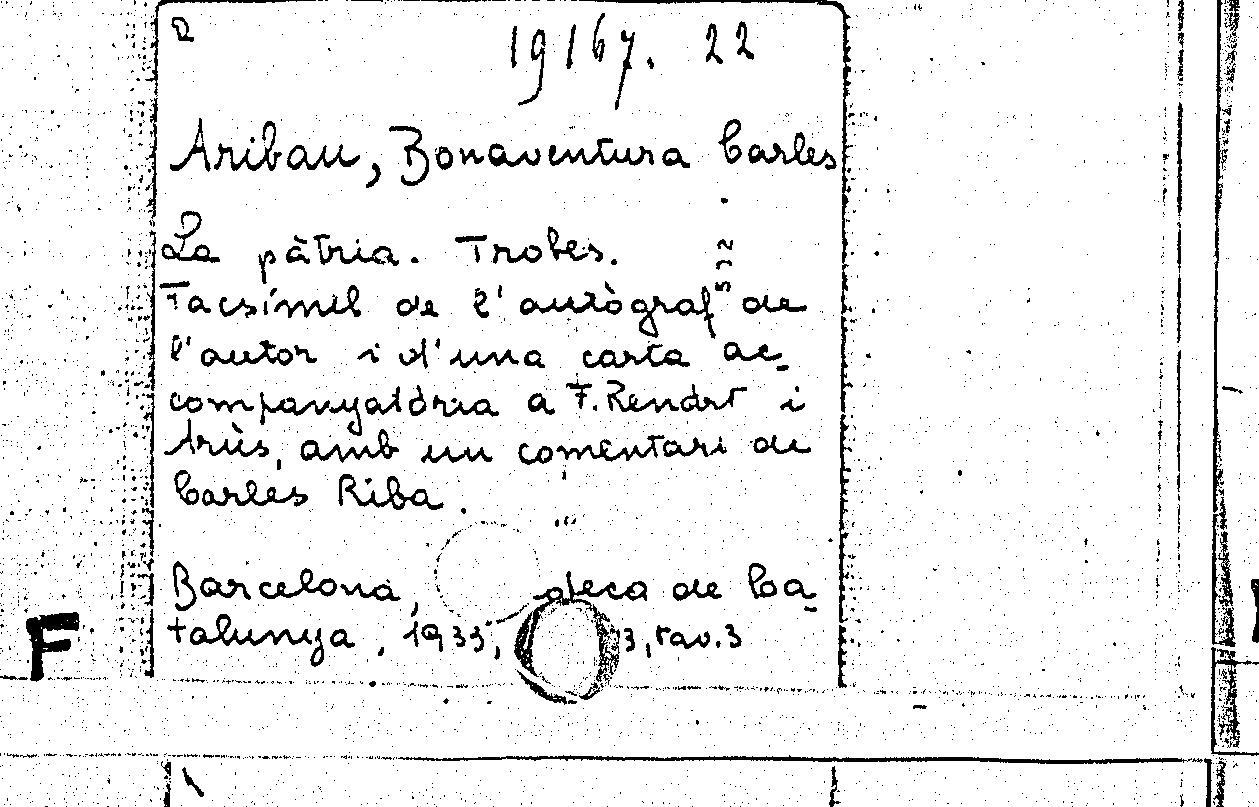 19167. 22
Aribau, Bonaventura Carles
La pàtria. Trobes.
Facsímil de l'autògraf de
l'autor i d'una carta ac-
companyatòria a F. Rendrt i
Arùs, amb un comentari de
Carles Riba.
Barcelona, oteca de Ca-
talunya, 1933, 3, tav.3
F